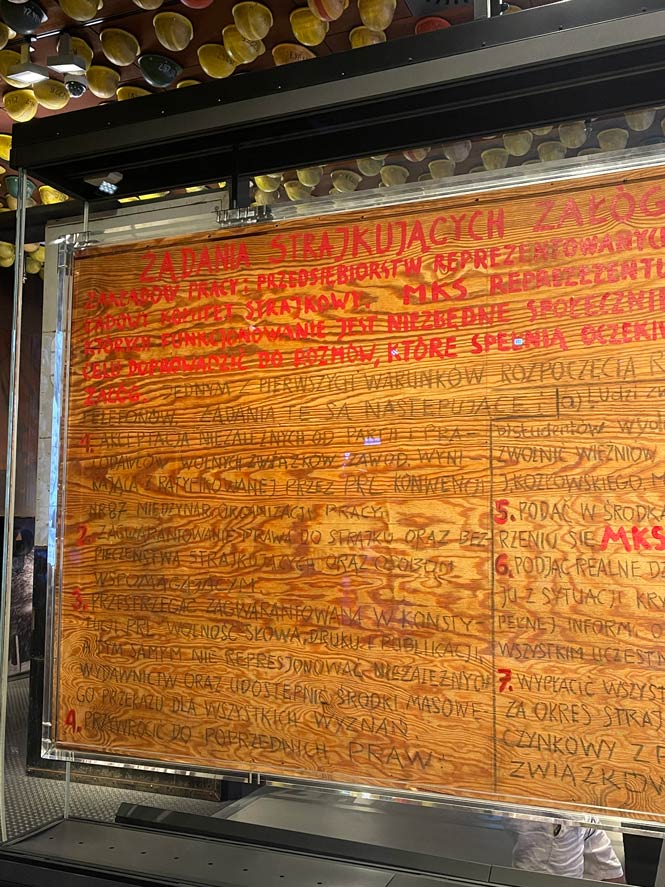 ŻĄDANIA STRAJKUJĄCYCH ZAŁÓG
ZAKŁADÓW PRACY I PRZEDSIĘBIORSTW REPREZENTOWANYCH
KOMITET STRAJKOWY. MKS REPREZENTU
KTÓRYCH FUNKCJONOWANIE JEST NIEZBĘDNE SPOŁECZNI
CELU DOPROWADZIĆ DO ROZMÓW, KTÓRE SPEŁNIĄ OCZEKI
ZAŁÓG. JEDNYM Z PIERWSZYCH WARUNKÓW ROZPOCZĘCIA R
ŻĄDANIA TE SĄ NASTĘPUJĄCE
1. AKCEPTACJA NIEZALEŻNYCH OD PARTII I PRA-
CODAWCÓW WOLNYCH ZWIĄZKÓW ZAWOD. WYNI-
KAJĄCA Z RATYFIKOWANEJ PRZEZ PRL KONWENCJI
NR 87 MIĘDZYNAR. ORGANIZACJI PRACY.
2. ZAGWARANTOWANIE PRAWA DO STRAJKU ORAZ BEZ-
PIECZEŃSTWA STRAJKUJĄCYCH ORAZ OSOBOM
WSPOMAGAJĄCYM.
3. PRZESTRZEGAĆ ZAGWARANTOWANĄ W KONSTY-
TUCJI PRL WOLNOŚĆ SŁOWA, DRUKU I PUBLIKACJI,
A TYM SAMYM NIE REPRESJONOWAĆ NIEZALEŻNYCH
WYDAWNICTW ORAZ UDOSTĘPNIĆ ŚRODKI MASOWE-
GO PRZEKAZU DLA WSZYSTKICH WYZNAŃ.
4. PRZYWRÓCIĆ DO POPRZEDNICH PRAW:
a) Ludzi z
b) studentów wyda
ZWOLNIĆ WIĘŹNIÓW
J. KOZŁOWSKIEGO M
5. PODAĆ W ŚRODKA
RZENIU SIĘ MKS
6. PODJĄĆ REALNE DZ
JU Z SYTUACJI KRY
PEŁNEJ INFORM. O
WSZYSTKIM UCZEST
7. WYPŁACIĆ WSZYST
ZA OKRES STRAJ
CZYNKOWY Z F
ZWIĄZKÓW